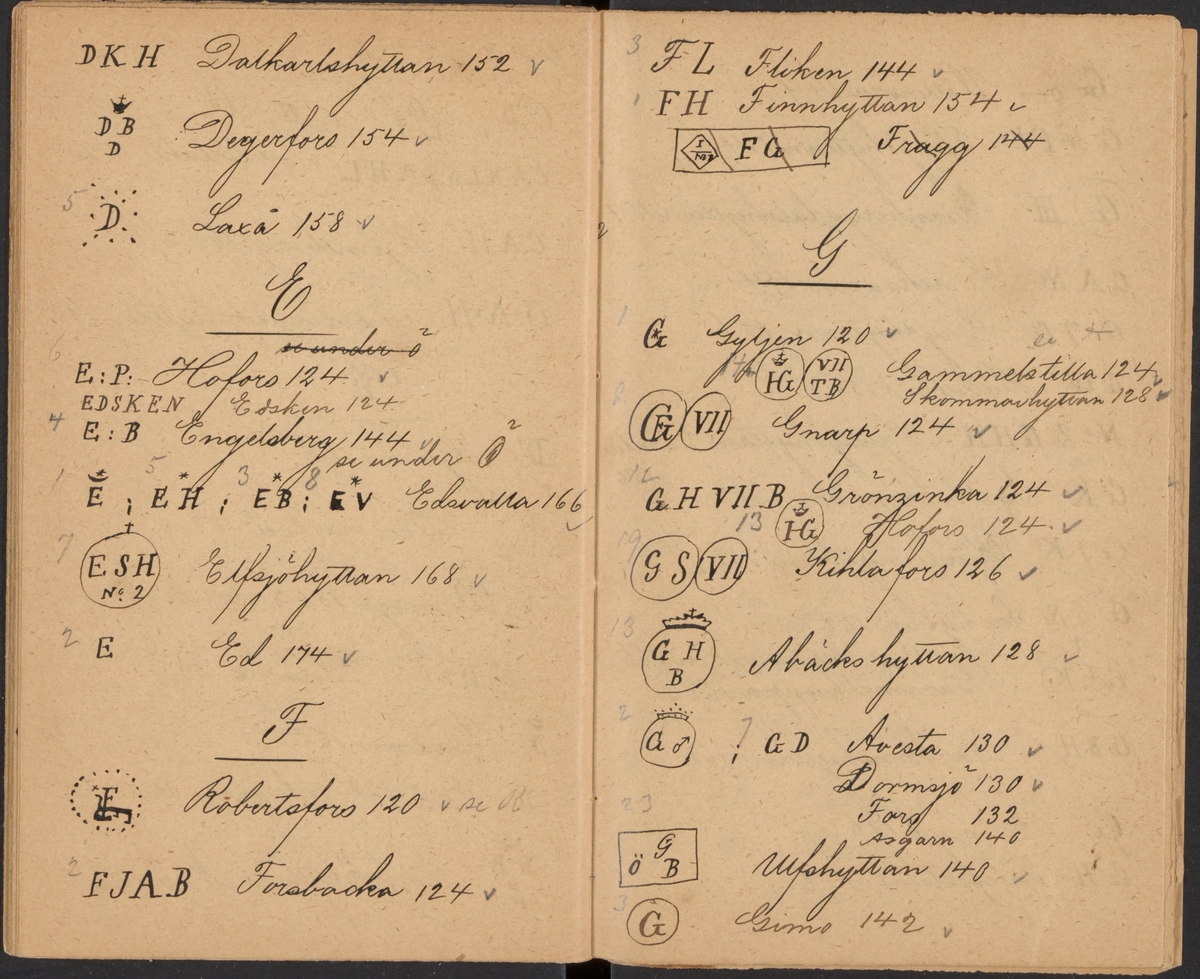 DKH Dalkarlshyttan 152 v
DB
D Degerfors 154 v
5 D Laxå 158 v
E
6 se under Ö
E:P: Hofors 124 v
EDSKEN Edsken 124
4 E:B Engelsberg 144 v
se under Ö
1 E ; 5 EH ; 3 EB ; 8 EV Edsvalla 166 v
7 ESH
No 2 Elfsjöhyttan 168 v
2 E Ed 174 v
F
F Robertsfors 120 v se R
2 FJAB Forsbacka 124 v
3 FL Fliken 144 v
1 FH Finnhyttan 154 v
FG Fragg 144
G
1 G Gyljen 120 v
14 HG VII
TB Gammelstilla 124 v
Skommarhyttan 128 v
GF VII Gnarp 124 v
12 GH VII B Grönzinka 124 v
13 HG Hofors 124 v
19 GS VII Kihlafors 126 v
13 GH
B Åbäckshyttan 128 v
2 G♂ ; 7 GD Avesta 130 v
Dormsjö 130 v
23 Fors 132
Asgarn 140
G
Ö B Ulfshyttan 140 v
3 G Gimo 142 v